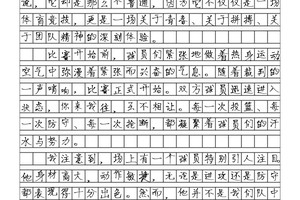 说，它却是那么不普通，因为它不仅仅是一场
体育竞技，更是一场关于青春、关于拼搏、关
于团队精神的深刻体验。
比赛开始前，队员们紧张地做着热身运动
空气中弥漫着紧张而兴奋的气息。随着裁判的
一声哨响，比赛正式开始。双方队员迅速进入
状态，你来我往，互不相让。每一次投篮、每
一次防守、每一次抢断，都凝聚着队员们的汗
水与努力。
我注意到，场上有一个队员特别引人注目
他身材高大，动作敏捷，无论是进攻还是防守
都表现得十分出色。然而，他并不是我们队中